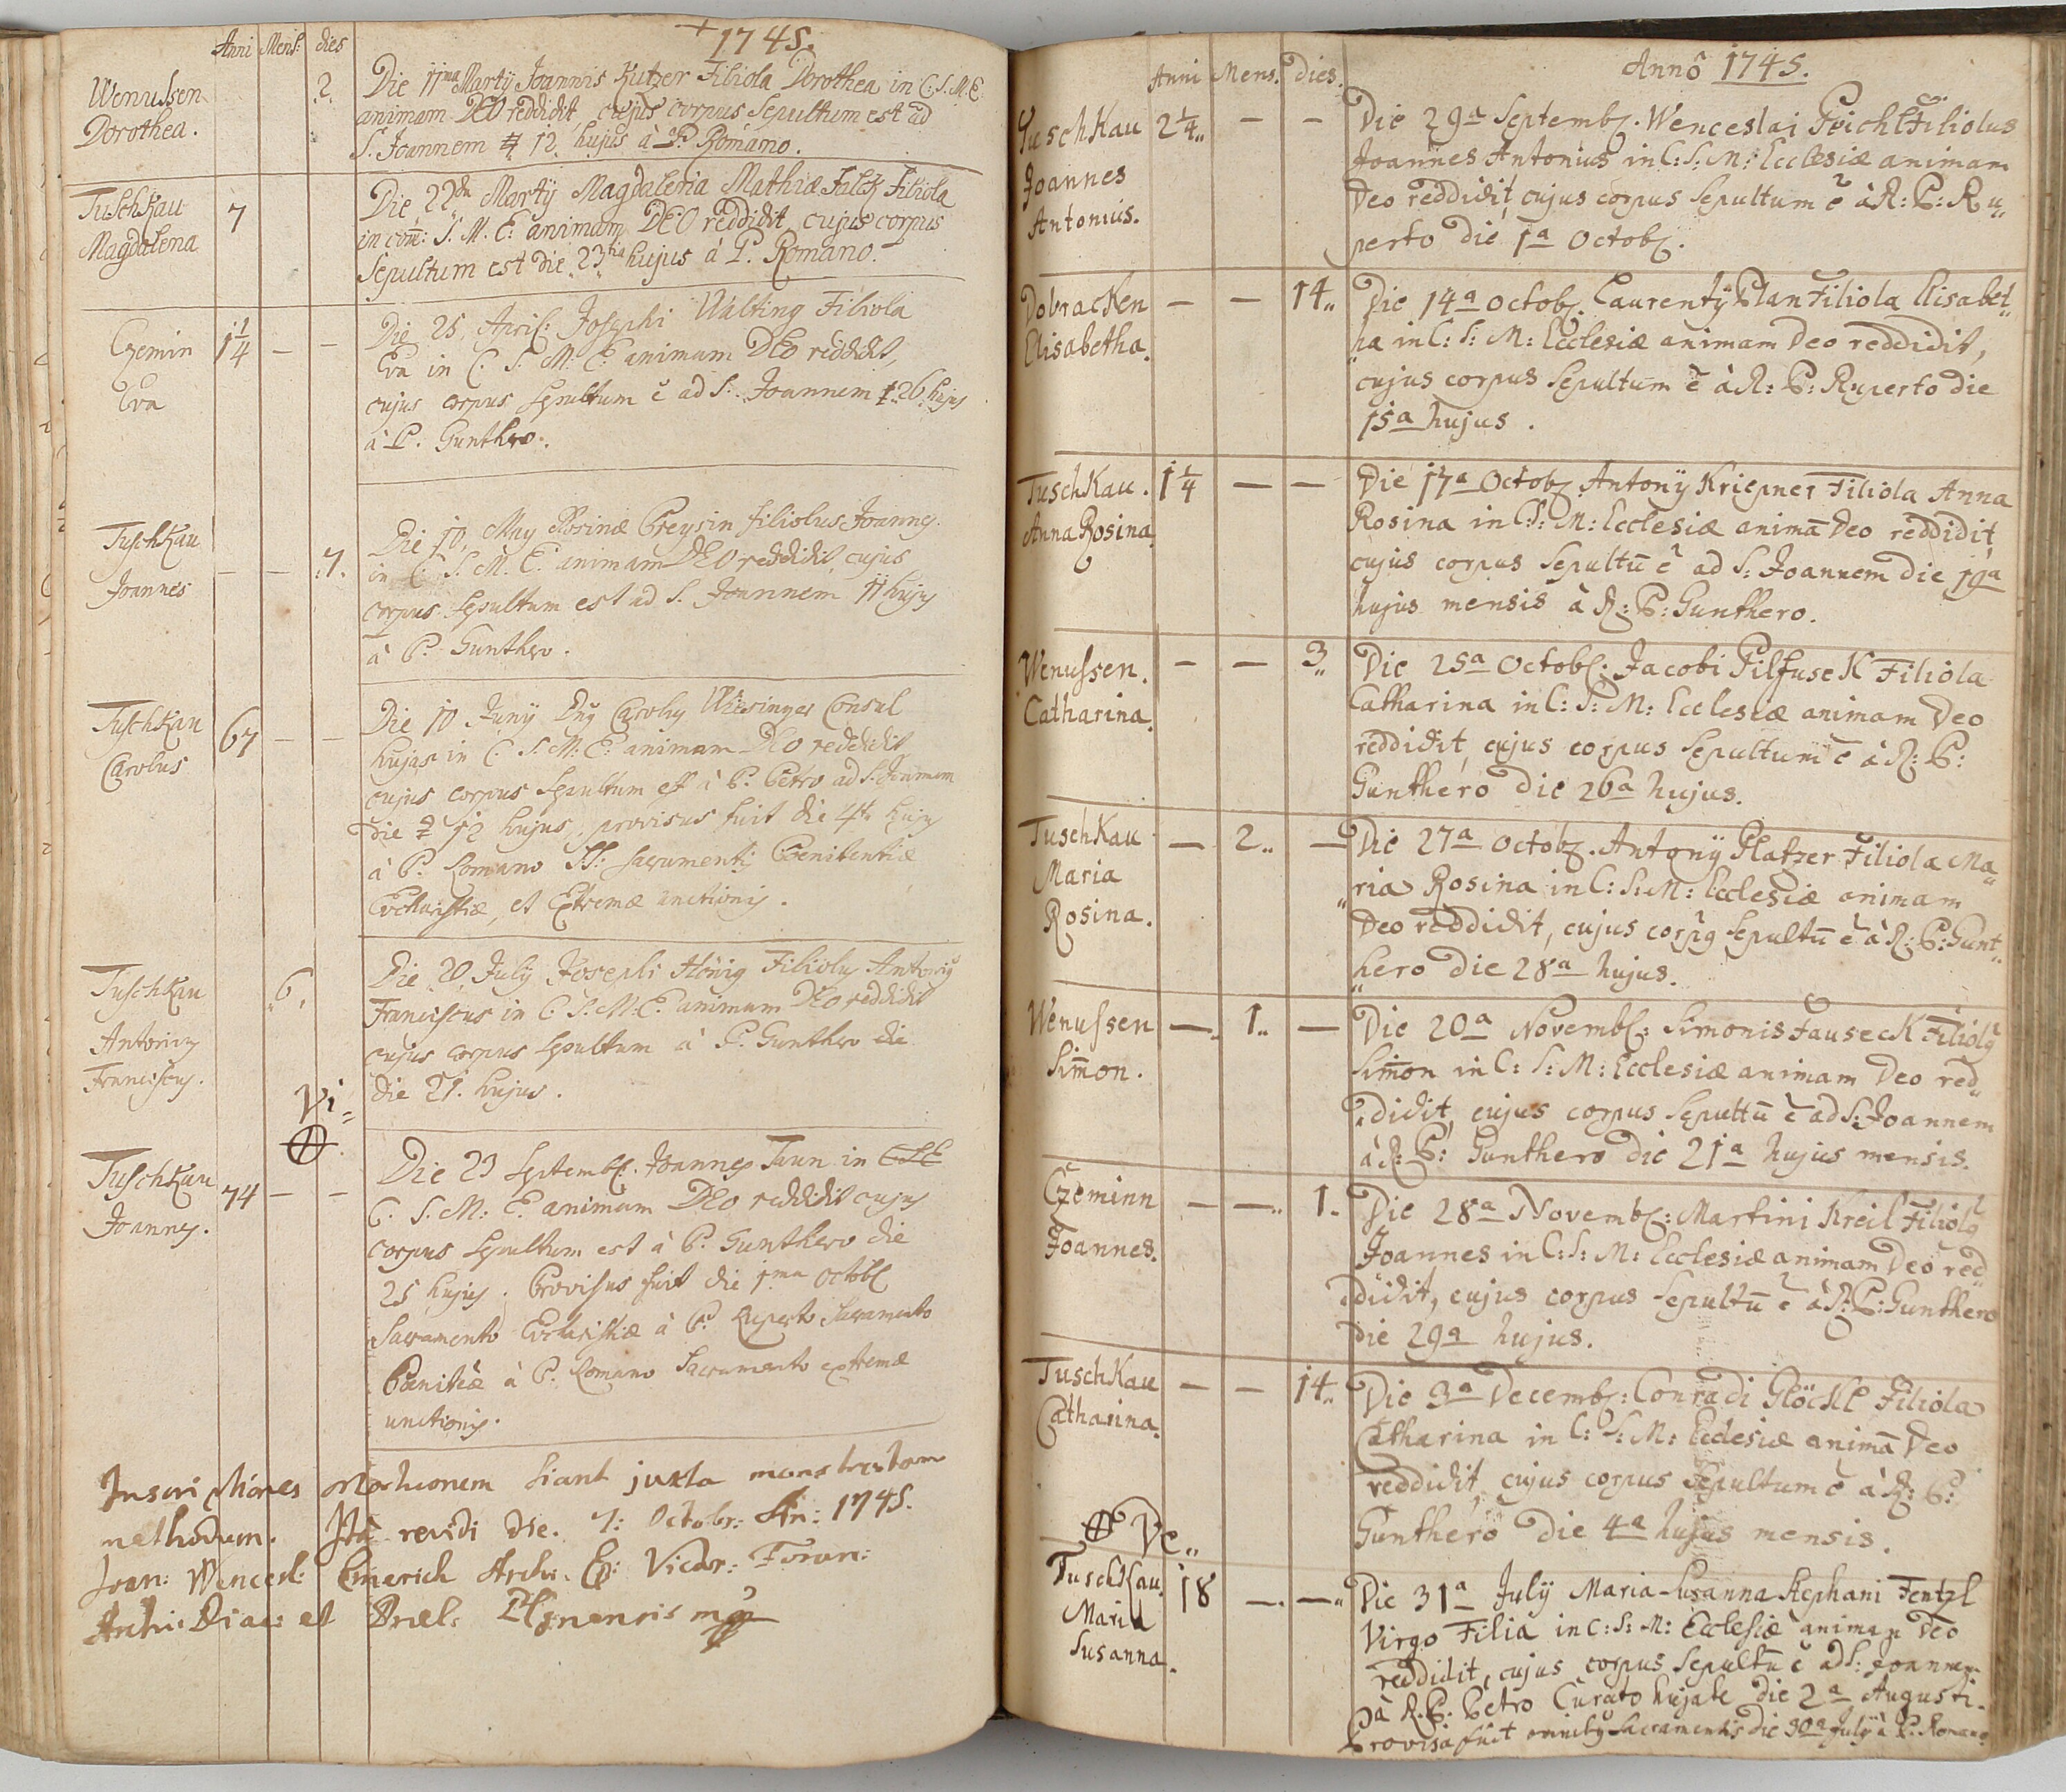 Anni Mens: dies
+1745.
Wenussen
Dorothea.
2.
Die 11ma Martÿ Joannis Kutzer Filiola Dorothea in C: S. M: E
animam DEO reddidit, cujus corpus Sepultum est ad
S. Joannem 12 hujus à P. Romano.
Tuschkau
Magdalena
7
Die 22da Martÿ Magdalena Mathiæ Falck Filiola
in com: S. M. E: animam DEO reddidit cujus corpus
Sepultum est die 23tia hujus à P. Romano.
Czemin
Eva
1 1/4 — —
Die 25 April: Josephi Walting Filiola
Eva in C. S. M. E: animam DEO reddidit,
cujus corpus sepultum ẽ ad S: Joannem 26 hujus
à P. Gunthero.
Tuschkau
Joannes
— — 7.
Die 10 May Rosinæ Greysin filiolus Joannes
in C. S. M. E: animam DEO reddidit, cujus
corpus sepultum est ad S. Joannem 11 hujus
à P. Gunthero.
Tuschkau
Carolus
67 — —
Die 10 Junÿ Dnus Carolus Wiesinger Consul
hujas in C. S. M: E: animam DEO reddidit
cujus corpus sepultum est à P. Petro ad S. Joannem
die 12 hujus, provisus fuit die 4ta hujus
à P. Romano SS: sacramentis Pœnitentiæ
Eucharistiæ, et Extremæ unctionis.
Tuschkau
Antonius
Franciscus.
6.
Die 20 July Josephi Hönig Filiolus Antonius
Franciscus in C. S. M: E: animam DEO reddidit
cujus corpus sepultum à P. Gunthero die
die 21. hujus.
Vi=
Tuschkau
Joannes.
74 — —
Die 23 Septemb. Joannes Taun in
C. S. M: E: animam DEO reddidit cujus
corpus sepultum est à P. Gunthero die
25 hujus. Provisus fuit die 1ma Octobr
Sacramento Eucharistiæ à P. Ruperto Sacramento
Pœniteæ à P. Romano Sacramento extremæ
unctionis.
Inscriptiones mortuorum fiant juxta monstratam
methodum. Ita revidi die. 7: Octobr: An: 1745.
Joan: Wencesl: Emerich Archi. Ep: Vicar: Foran:
Archi: Diac: et Præl: Plsnensis mp
Anni Mens. Dies.
Annô 1745.
Tuschkau
Joannes
Antonius.
2 1/4 — —
Die 29a Septemb. Wenceslai Peichl Filiolus
Joannes Antonius in C: S: M: Ecclesiæ animam
Deo reddidit, cujus corpus sepultum ẽ à R: P: Ru„
perto die 1a Octob.
Dobracken
Elisabetha.
— — 14„
Die 14a Octob. Laurentÿ Plan Filiola Elisabet„
„ha in C: S: M: Ecclesiæ animam Deo reddidit,
cujus corpus sepultum ẽ à R: P: Ruperto die
15a hujus.
Tuschkau.
Anna Rosina.
1 1/4 — —
Die 17a Octob. Antonÿ Kriepner Filiola Anna
Rosina in C: S: M: Ecclesiæ animā Deo reddidit,
cujus corpus sepultū ẽ ad S: Joannem die 19a
hujus mensis à R: P: Gunthero.
Wenussen.
Catharina.
— — 3„
Die 25a Octob: Jacobi Pilfusek Filiola
Catharina in C: S: M: Ecclesiæ animam Deo
reddidit, cujus corpus sepultum ẽ à R: P:
Gunthero die 26a hujus.
Tuschkau
Maria
Rosina.
— 2„ —
Die 27a Octob. Antonÿ Platzer Filiola Ma„
„ria Rosina in C: S: M: Ecclesiæ animam
Deo reddidit, cujus corpus sepultū ẽ à R: P: Gunt„
„hero die 28a hujus.
Wenussen
Sim̄on.
— 1„ —
Die 20a Novemb: Simonis Fauseck Filiolus
Sim̄on in C: S: M: Ecclesiæ animam Deo red„
„didit, cujus corpus sepultū ẽ ad S: Joannem
à R: P: Gunthero die 21a hujus mensis.
Czeminn
Joannes.
— — 1.
Die 28a Novemb: Martini Kreil Filiolus
Joannes in C: S: M: Ecclesiæ animam Deo red
didit, cujus corpus sepultū ẽ à R: P: Gunthero
die 29a hujus.
Tuschkau
Catharina.
— — 14„
Die 3a Decemb: Conradi Glöckl Filiola
Catharina in C: S: M: Ecclesiæ animā Deo
reddidit, cujus corpus sepultum ẽ à R: P:
Gunthero die 4a hujus mensis.
Ve„
Tuschkau
Maria
Susanna.
18 — —
Die 31a July Maria Susanna Stephani Fentzl
Virgo Filia in C: S: M: Ecclesiæ animam Deo
reddidit, cujus corpus sepultū ẽ ad S: Joannem
à R. P: Petro Curato hujate die 2a Augusti.
Provisa fuit omnibus sacramentis die 30a July à P. Romano